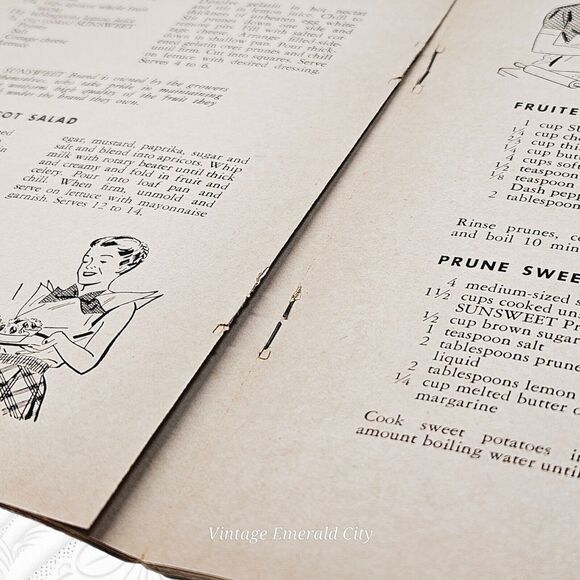 Dissolve gelatin in hot nectar
Chill to
egg white
salt, and cot-
Arrange filled-side-
down in shallow pan. Pour thick-
ened gelatin over prunes and chill
until firm. Cut into squares. Serve
in lettuce with desired dressing.
Serves 4 to 6.
Salt
Cottage cheese
Lettuce
SUNSWEET Brand is owned by the growers
take pride in maintaining
uniform, high quality in the fruit they
under the brand they own.
COT SALAD
egar, mustard, paprika, sugar and
salt and blend into apricots. Whip
milk with rotary beater until thick
and creamy and fold in fruit and
celery. Pour into loaf pan and
chill. When firm, unmold and
serve on lettuce with mayonnaise
garnish. Serves 12 to 14.
FRUITE
1 cup SU
1/4 cup cho
2/3 cup thi
1/4 cup butt
4 cups soft
1/2 teaspoon
1/8 teaspoon
Dash pepp
2 tablespoon
Rinse prunes, co
and boil 10 min
PRUNE SWEE
4 medium-sized s
1 1/2 cups cooked uns
SUNSWEET Pr
1/2 cup brown sugar
1 teaspoon salt
2 tablespoons prune
liquid
2 tablespoons lemon
1/4 cup melted butter o
margarine
Cook sweet potatoes in
amount boiling water until
Vintage Emerald City